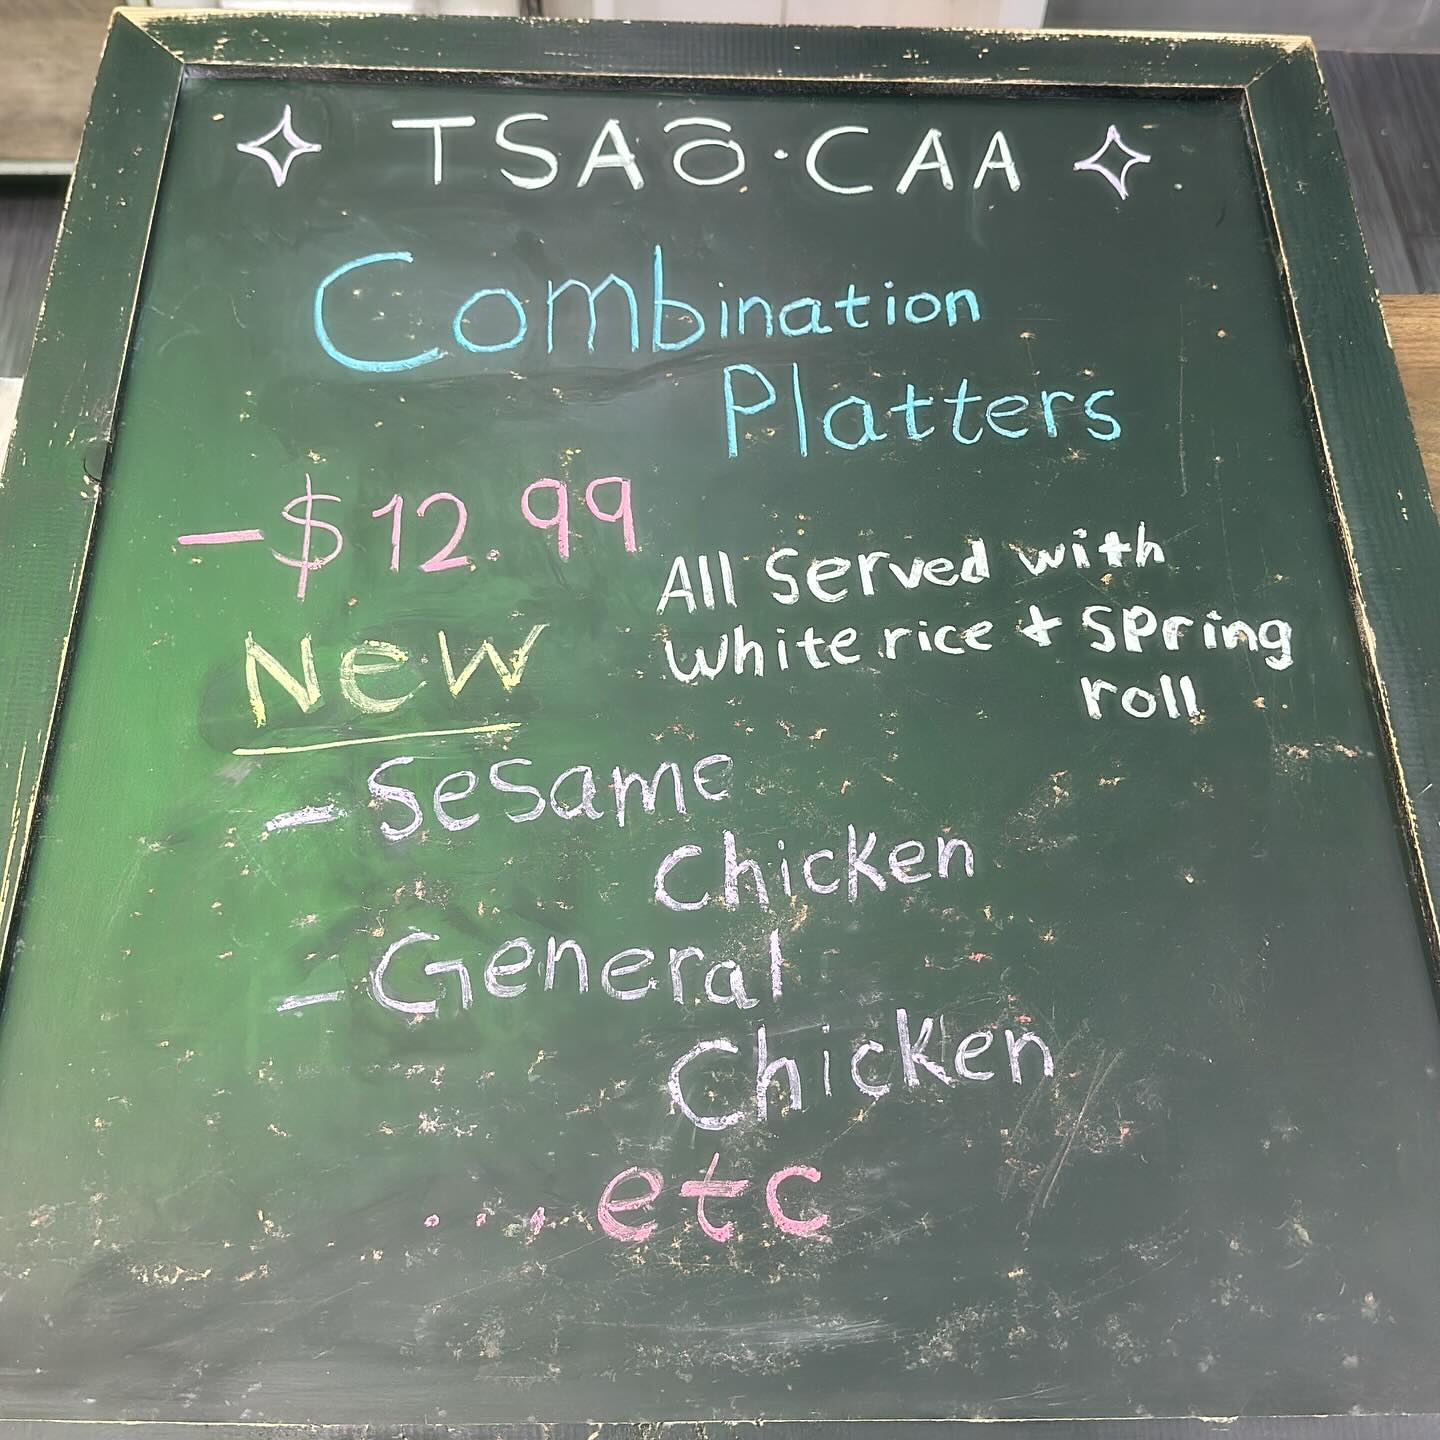 TSAŌ·CAA
Combination
Platters
-$12.99
All Served with
White rice + Spring
roll
New
- Sesame
Chicken
- General
Chicken
...etc